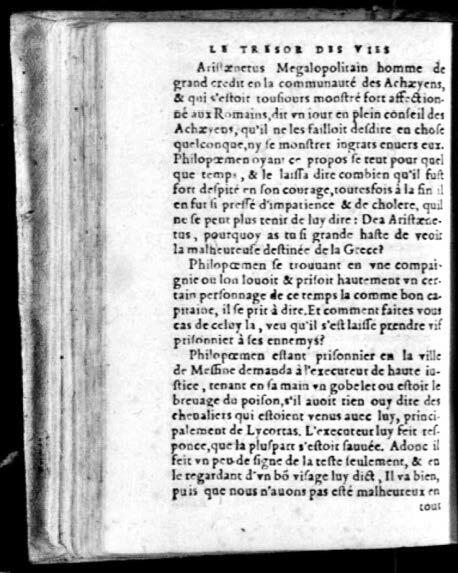 LE TRESOR DES VIES
Aristænetus Megalopolitain homme de
grand credit en la communauté des Achæyens,
& qui s'estoit tousiours monstré fort affection-
né aux Romains, dit vn iour en plein conseil des
Achæyens, qu'il ne les failloit desdire en chose
quelconque, ny se monstrer ingrats enuers eux.
Philopœmen oyant ce propos se teut pour quel
que temps, & le laissa dire combien qu'il fust
fort despité en son courage, toutesfois à la fin il
en fut si pressé d'impatience & de cholere, quil
ne se peut plus tenir de luy dire: Dea Aristæne-
tus, pourquoy as tu si grande haste de veoir
la malheureuse destinée de la Grece?
Philopœmen se trouuant en vne compai-
gnie ou lon louoit & prisoit hautement vn cer-
tain personnage de ce temps la comme bon ca-
pitaine, il se prit à dire. Et comment faites vous
cas de celuy la, veu qu'il s'est laissé prendre vif
prisonnier à ses ennemys?
Philopœmen estant prisonnier en la ville
de Messine demanda à l'executeur de haute iu-
stice, tenant en sa main vn gobelet ou estoit le
breuage du poison, s'il auoit rien ouy dire des
cheualiers qui estoient venus auec luy, princi-
palement de Lycortas. L'executeur luy feit res-
ponce, que la pluspart s'estoit sauuée. Adonc il
feit vn peu de signe de la teste seulement, & en
le regardant d'vn bõ visage luy dict, Il va bien,
puis que nous n'auons pas esté malheureux en
tous